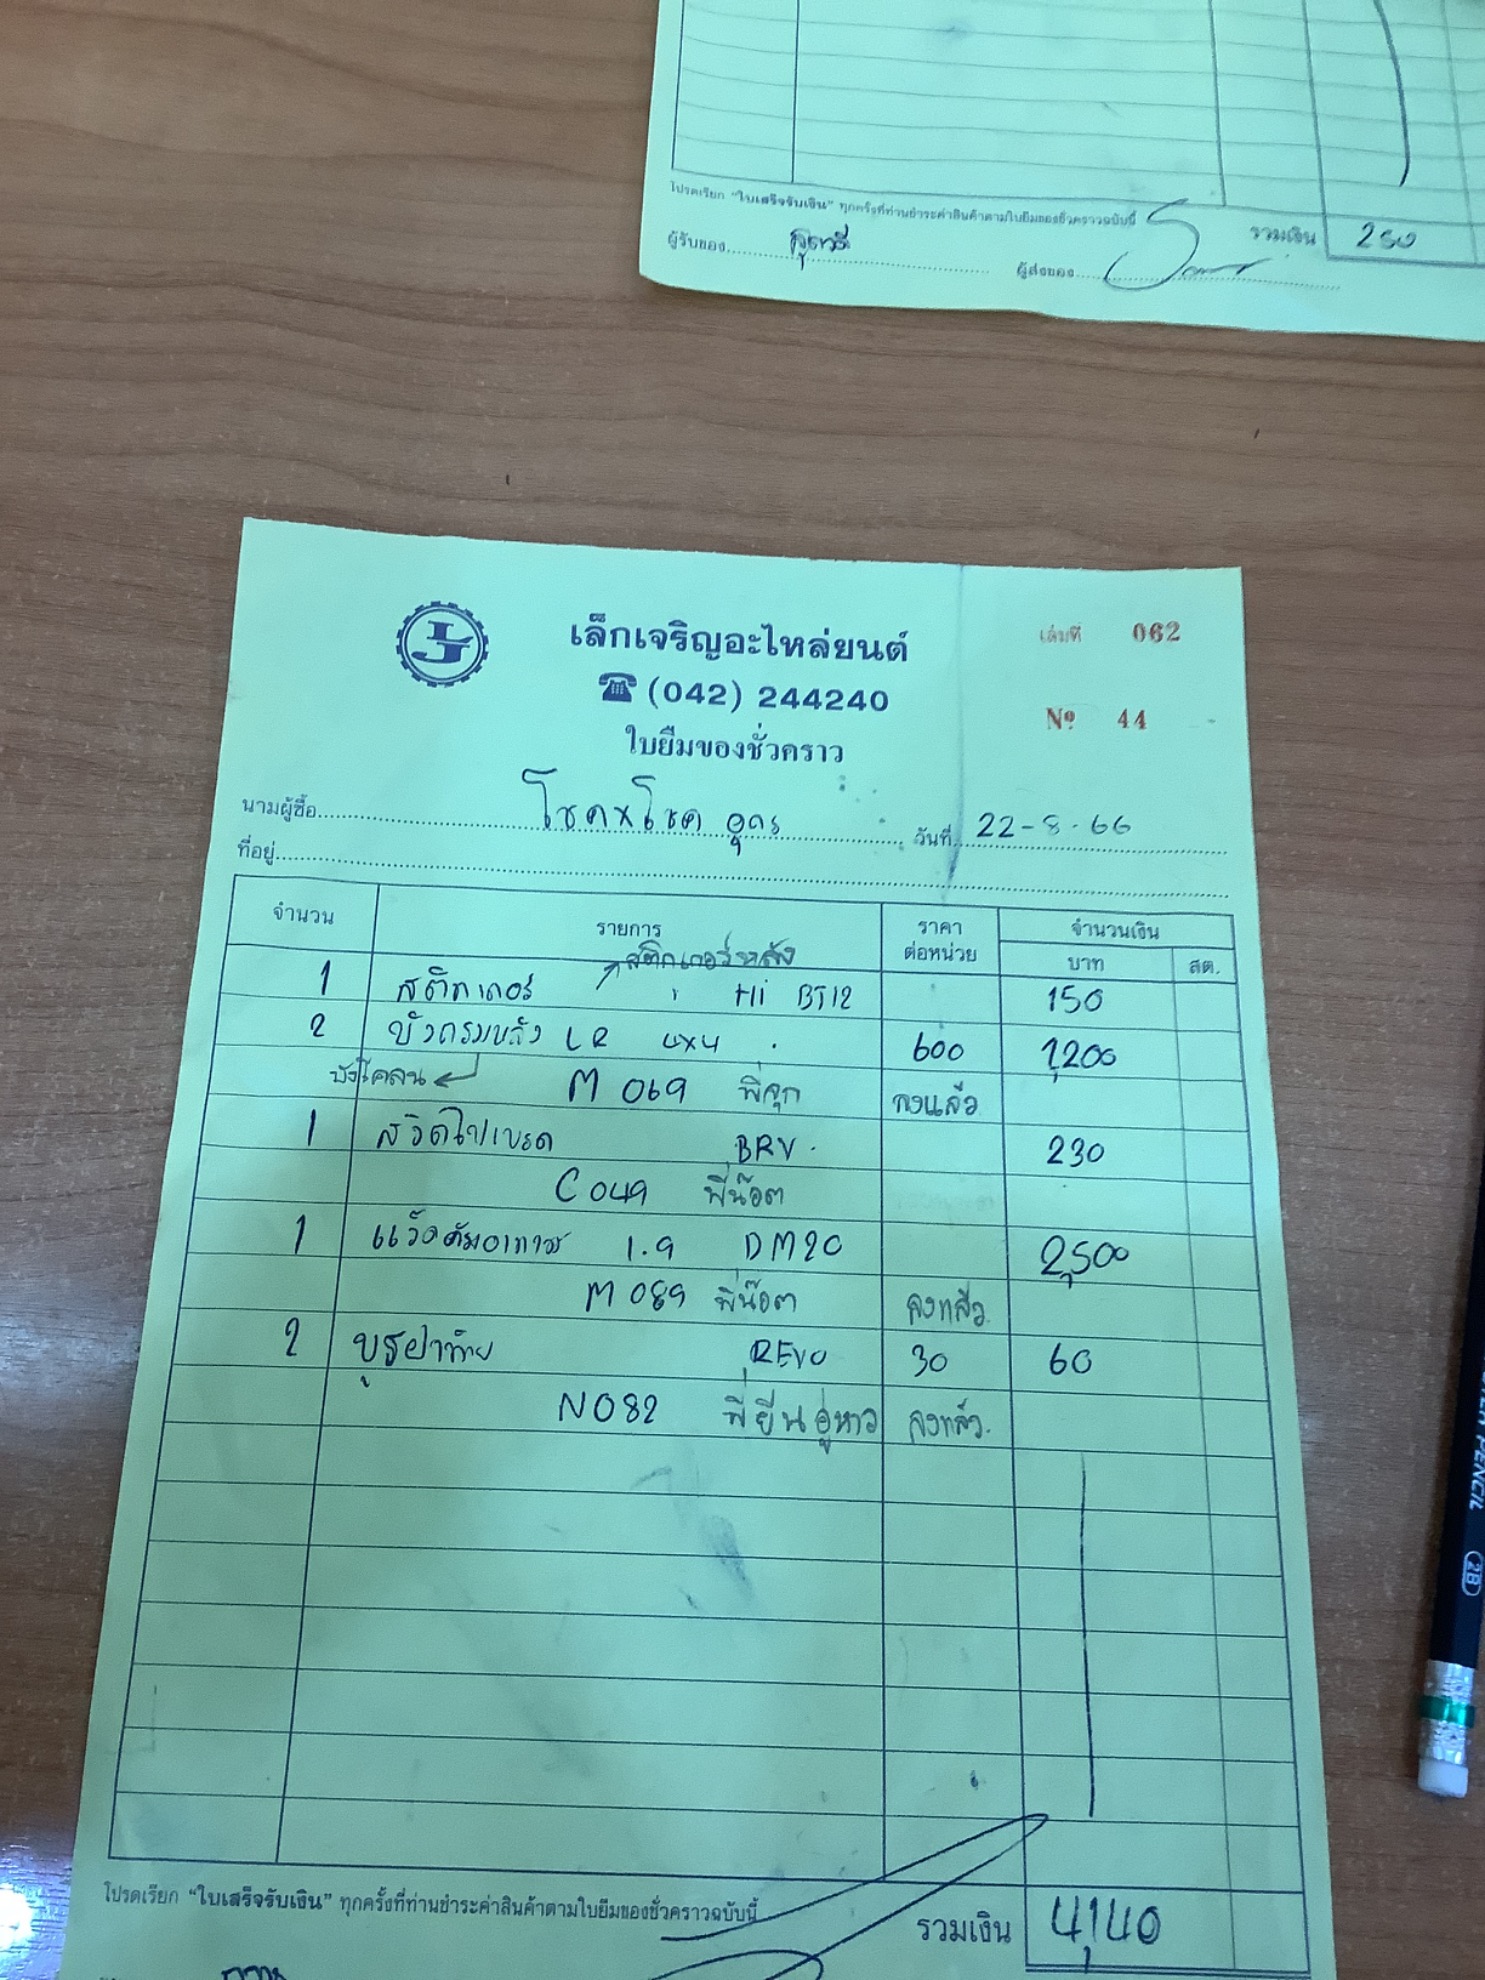 โปรดเรียก "ใบเสร็จรับเงิน" ทุกครั้งที่ท่านชำระค่าสินค้าตามใบยืมของชั่วคราวฉบับนี้
ผู้รับของ
ผู้ส่งของ
รวมเงิน 250
LJ
เล็กเจริญอะไหล่ยนต์
เล่มที่ 062
(042) 244240
Nº 44
ใบยืมของชั่วคราว
นามผู้ซื้อ โชค x โชค อุดร วันที่ 22-8-66
ที่อยู่
จำนวน รายการ ราคาต่อหน่วย จำนวนเงิน
บาท สต.
สติกเกอร์หลัง
1 สติกเกอร์ Hi BT12 150
2 LR 4x4 600 1,200
M 069 พี่จุก ลงแล้ว
1 สวิตไฟเบรค BRV 230
C 049 พี่น๊อต
1 1.9 DM20 2,500
M 089 พี่น๊อต ลงแล้ว
2 REVO 30 60
N 082 พี่ยีนอู่หาว ลงแล้ว
โปรดเรียก "ใบเสร็จรับเงิน" ทุกครั้งที่ท่านชำระค่าสินค้าตามใบยืมของชั่วคราวฉบับนี้
รวมเงิน 4,140
PENCIL 2B